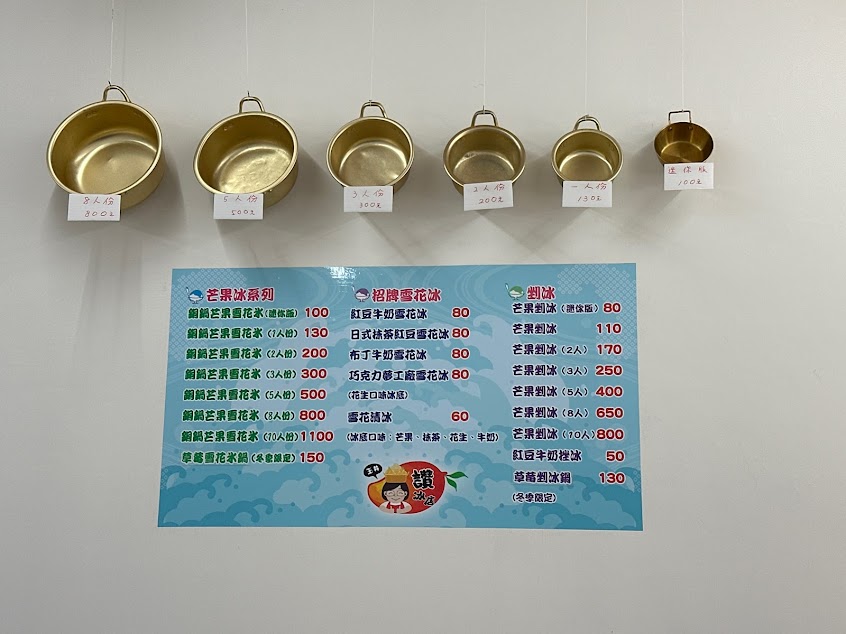 8人份
800元
5人份
500元
3人份
300元
2人份
200元
一人份
130元
迷你版
100元
芒果冰系列
銅鍋芒果雪花氷(迷你版) 100
銅鍋芒果雪花氷(1人份) 130
銅鍋芒果雪花氷(2人份) 200
銅鍋芒果雪花氷(3人份) 300
銅鍋芒果雪花氷(5人份) 500
銅鍋芒果雪花氷(8人份) 800
銅鍋芒果雪花氷(10人份) 1100
草莓雪花氷鍋(冬季限定) 150
招牌雪花冰
紅豆牛奶雪花冰 80
日式抹茶紅豆雪花冰 80
布丁牛奶雪花冰 80
巧克力夢工廠雪花冰 80
(花生口味冰底)
雪花清冰 60
(冰底口味：芒果、抹茶、花生、牛奶)
玉井
讚
冰店
剉冰
芒果剉冰(迷你版) 80
芒果剉冰 110
芒果剉冰(2人) 170
芒果剉冰(3人) 250
芒果剉冰(5人) 400
芒果剉冰(8人) 650
芒果剉冰(10人) 800
紅豆牛奶挫冰 50
草莓剉冰鍋 130
(冬季限定)